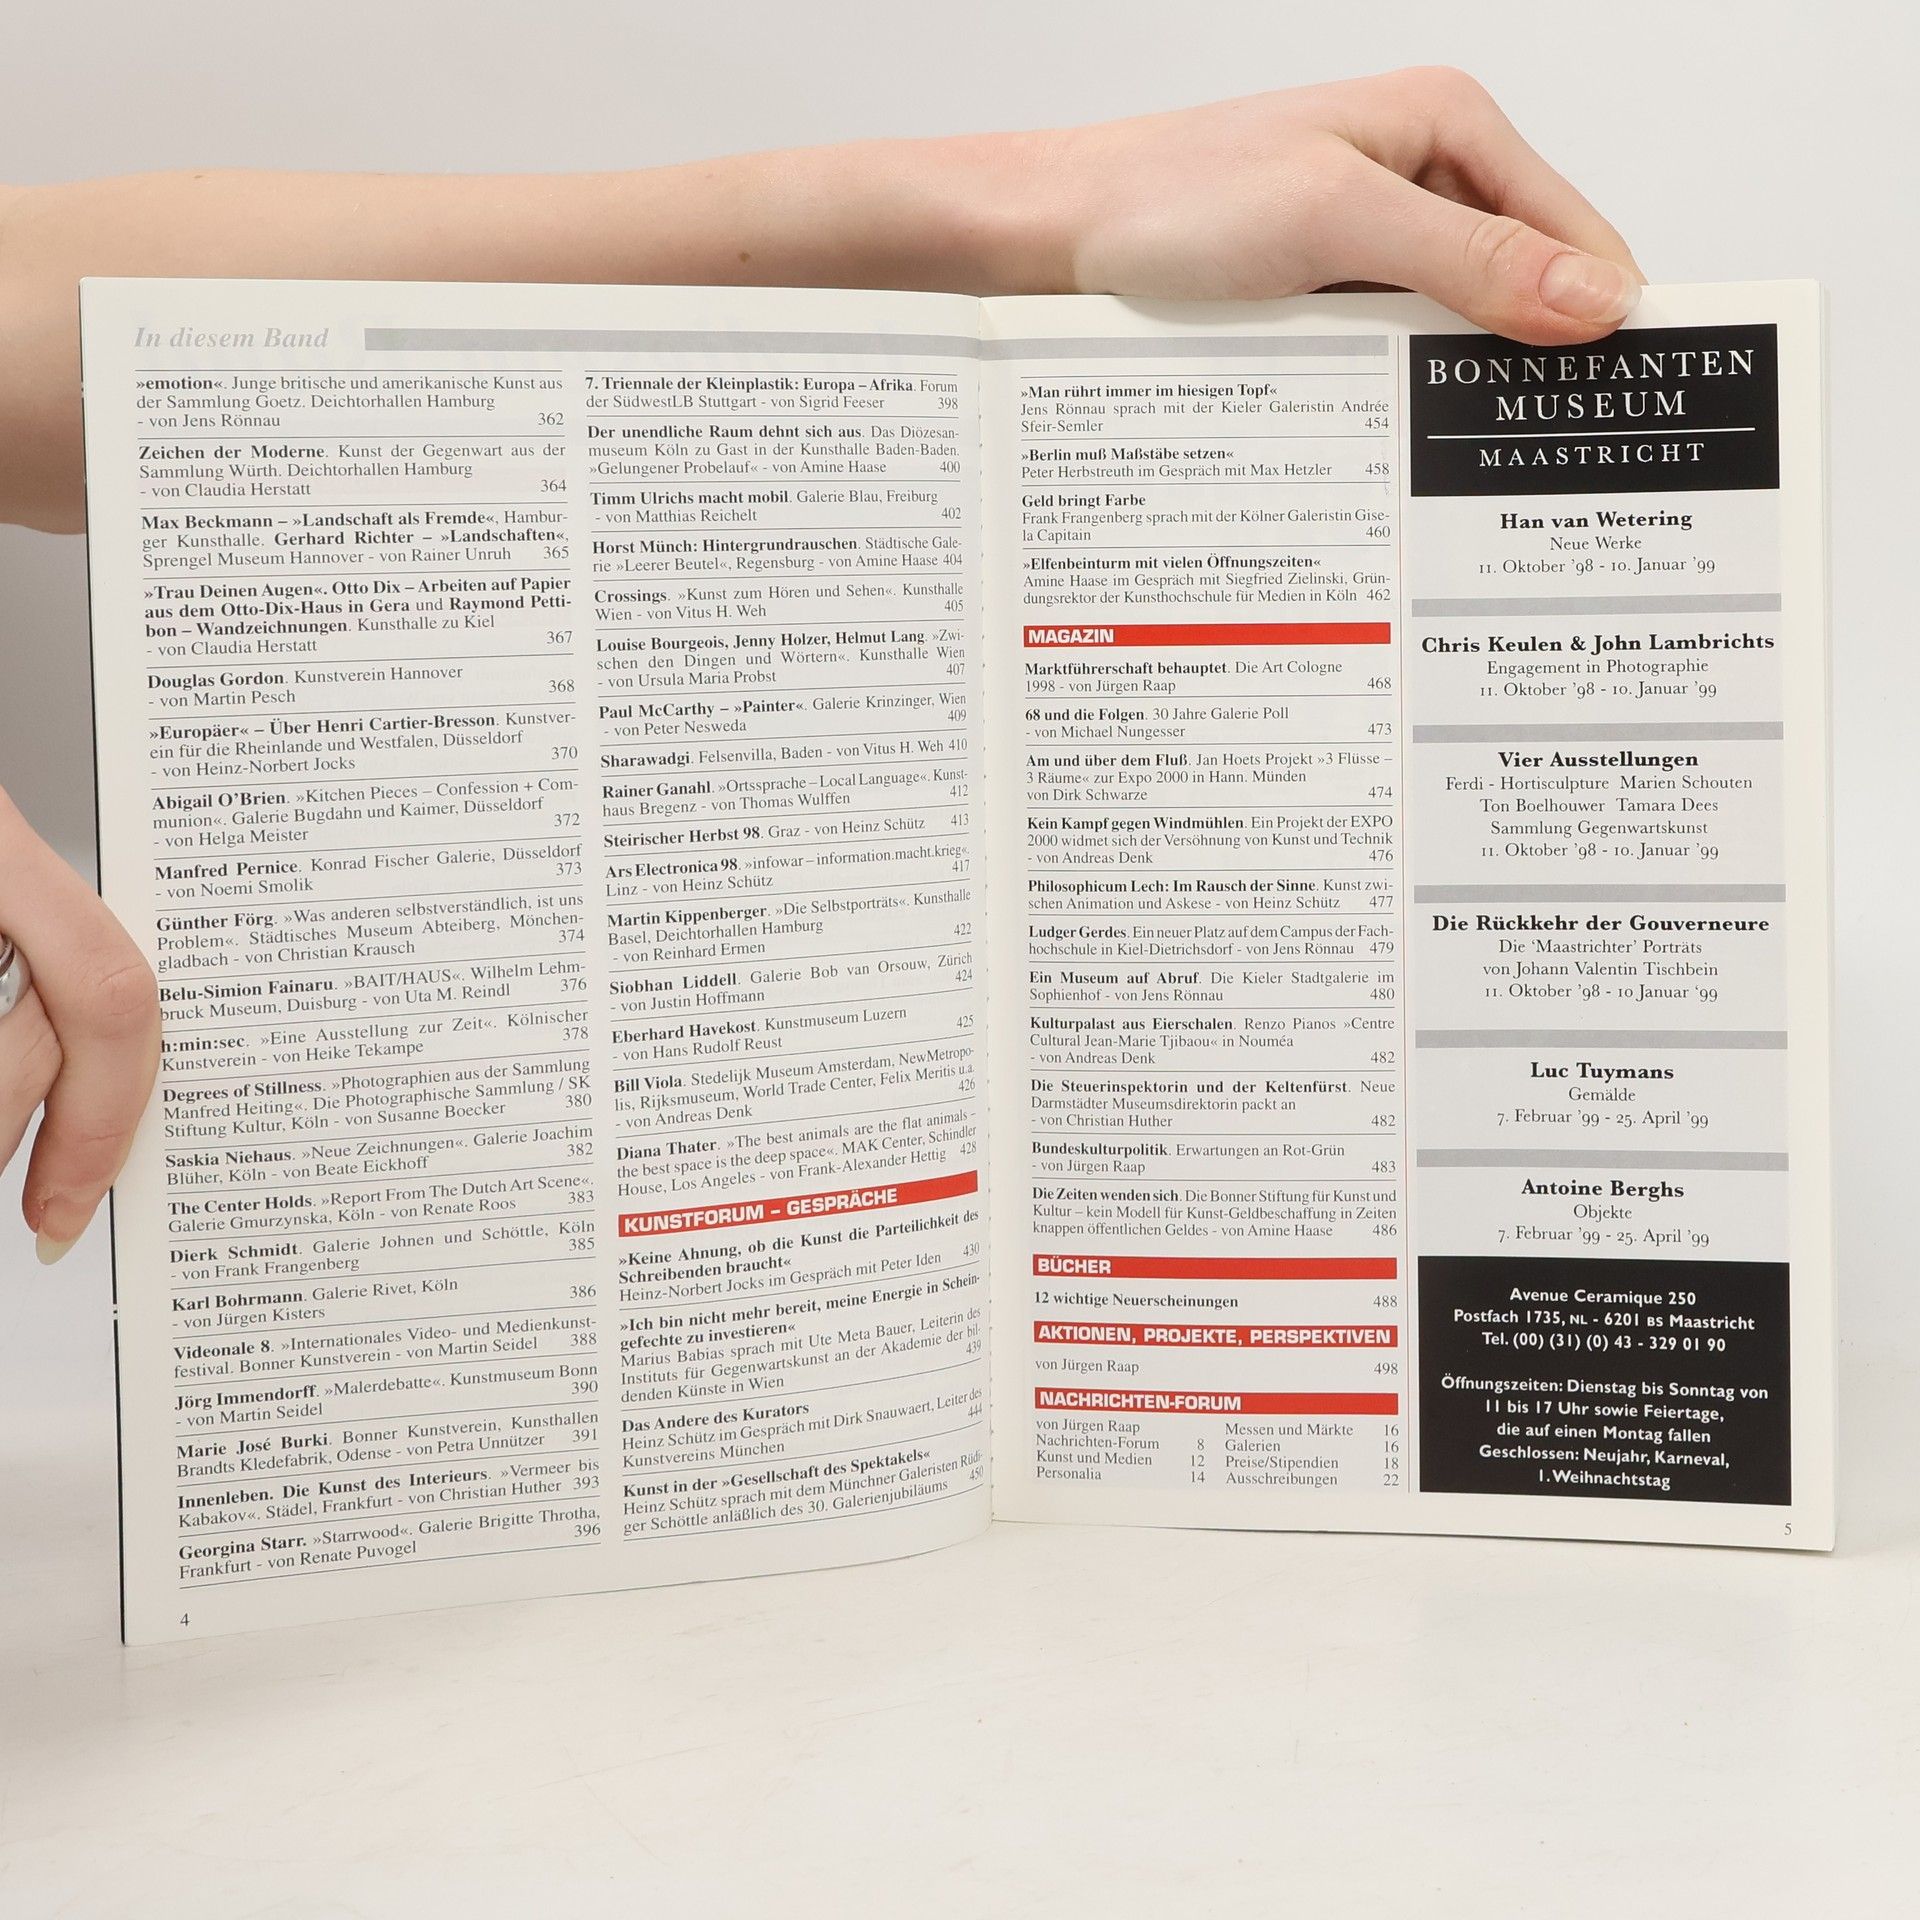 In diesem Band
»emotion«. Junge britische und amerikanische Kunst aus
der Sammlung Goetz. Deichtorhallen Hamburg
- von Jens Rönnau 362
Zeichen der Moderne. Kunst der Gegenwart aus der
Sammlung Würth. Deichtorhallen Hamburg
- von Claudia Herstatt 364
Max Beckmann – »Landschaft als Fremde«, Hambur-
ger Kunsthalle. Gerhard Richter – »Landschaften«,
Sprengel Museum Hannover - von Rainer Unruh 365
»Trau Deinen Augen«. Otto Dix – Arbeiten auf Papier
aus dem Otto-Dix-Haus in Gera und Raymond Petti-
bon – Wandzeichnungen. Kunsthalle zu Kiel
- von Claudia Herstatt 367
Douglas Gordon. Kunstverein Hannover
- von Martin Pesch 368
»Europäer« – Über Henri Cartier-Bresson. Kunstver-
ein für die Rheinlande und Westfalen, Düsseldorf
- von Heinz-Norbert Jocks 370
Abigail O’Brien. »Kitchen Pieces – Confession + Com-
munion«. Galerie Bugdahn und Kaimer, Düsseldorf
- von Helga Meister 372
Manfred Pernice. Konrad Fischer Galerie, Düsseldorf
- von Noemi Smolik 373
Günther Förg. »Was anderen selbstverständlich, ist uns
Problem«. Städtisches Museum Abteiberg, Mönchen-
gladbach - von Christian Krausch 374
Belu-Simion Fainaru. »BAIT/HAUS«. Wilhelm Lehm-
bruck Museum, Duisburg - von Uta M. Reindl 376
h:min:sec. »Eine Ausstellung zur Zeit«. Kölnischer
Kunstverein - von Heike Tekampe 378
Degrees of Stillness. »Photographien aus der Sammlung
Manfred Heiting«. Die Photographische Sammlung / SK
Stiftung Kultur, Köln - von Susanne Boecker 380
Saskia Niehaus. »Neue Zeichnungen«. Galerie Joachim
Blüher, Köln - von Beate Eickhoff 382
The Center Holds. »Report From The Dutch Art Scene«.
Galerie Gmurzynska, Köln - von Renate Roos 383
Dierk Schmidt. Galerie Johnen und Schöttle, Köln
- von Frank Frangenberg 385
Karl Bohrmann. Galerie Rivet, Köln
- von Jürgen Kisters 386
Videonale 8. »Internationales Video- und Medienkunst-
festival. Bonner Kunstverein - von Martin Seidel 388
Jörg Immendorff. »Malerdebatte«. Kunstmuseum Bonn
- von Martin Seidel 390
Marie José Burki. Bonner Kunstverein, Kunsthallen
Brandts Kledefabrik, Odense - von Petra Unnützer 391
Innenleben. Die Kunst des Interieurs. »Vermeer bis
Kabakov«. Städel, Frankfurt - von Christian Huther 393
Georgina Starr. »Starrwood«. Galerie Brigitte Throtha,
Frankfurt - von Renate Puvogel 396
4
7. Triennale der Kleinplastik: Europa – Afrika. Forum
der SüdwestLB Stuttgart - von Sigrid Feeser 398
Der unendliche Raum dehnt sich aus. Das Diözesan-
museum Köln zu Gast in der Kunsthalle Baden-Baden.
»Gelungener Probelauf« - von Amine Haase 400
Timm Ulrichs macht mobil. Galerie Blau, Freiburg
- von Matthias Reichelt 402
Horst Münch: Hintergrundrauschen. Städtische Gale-
rie »Leerer Beutel«, Regensburg - von Amine Haase 404
Crossings. »Kunst zum Hören und Sehen«. Kunsthalle
Wien - von Vitus H. Weh 405
Louise Bourgeois, Jenny Holzer, Helmut Lang. »Zwi-
schen den Dingen und Wörtern«. Kunsthalle Wien
- von Ursula Maria Probst 407
Paul McCarthy – »Painter«. Galerie Krinzinger, Wien
- von Peter Nesweda 409
Sharawadgi. Felsenvilla, Baden - von Vitus H. Weh 410
Rainer Ganahl. »Ortssprache – Local Language«. Kunst-
haus Bregenz - von Thomas Wulffen 412
Steirischer Herbst 98. Graz - von Heinz Schütz 413
Ars Electronica 98. »infowar – information.macht.krieg«.
Linz - von Heinz Schütz 417
Martin Kippenberger. »Die Selbstporträts«. Kunsthalle
Basel, Deichtorhallen Hamburg
- von Reinhard Ermen 422
Siobhan Liddell. Galerie Bob van Orsouw, Zürich
- von Justin Hoffmann 424
Eberhard Havekost. Kunstmuseum Luzern
- von Hans Rudolf Reust 425
Bill Viola. Stedelijk Museum Amsterdam, NewMetropo-
lis, Rijksmuseum, World Trade Center, Felix Meritis u.a.
- von Andreas Denk 426
Diana Thater. »The best animals are the flat animals -
the best space is the deep space«. MAK Center, Schindler
House, Los Angeles - von Frank-Alexander Hettig 428
KUNSTFORUM – GESPRÄCHE
»Keine Ahnung, ob die Kunst die Parteilichkeit des
Schreibenden braucht«
Heinz-Norbert Jocks im Gespräch mit Peter Iden 430
»Ich bin nicht mehr bereit, meine Energie in Schein-
gefechte zu investieren«
Marius Babias sprach mit Ute Meta Bauer, Leiterin des
Instituts für Gegenwartskunst an der Akademie der bil-
denden Künste in Wien 439
Das Andere des Kurators
Heinz Schütz im Gespräch mit Dirk Snauwaert, Leiter des
Kunstvereins München 444
Kunst in der »Gesellschaft des Spektakels«
Heinz Schütz sprach mit dem Münchner Galeristen Rüdi-
ger Schöttle anläßlich des 30. Galerienjubiläums 450
»Man rührt immer im hiesigen Topf«
Jens Rönnau sprach mit der Kieler Galeristin Andrée
Sfeir-Semler 454
»Berlin muß Maßstäbe setzen«
Peter Herbstreuth im Gespräch mit Max Hetzler 458
Geld bringt Farbe
Frank Frangenberg sprach mit der Kölner Galeristin Gise-
la Capitain 460
»Elfenbeinturm mit vielen Öffnungszeiten«
Amine Haase im Gespräch mit Siegfried Zielinski, Grün-
dungsrektor der Kunsthochschule für Medien in Köln 462
MAGAZIN
Marktführerschaft behauptet. Die Art Cologne
1998 - von Jürgen Raap 468
68 und die Folgen. 30 Jahre Galerie Poll
- von Michael Nungesser 473
Am und über dem Fluß. Jan Hoets Projekt »3 Flüsse –
3 Räume« zur Expo 2000 in Hann. Münden
von Dirk Schwarze 474
Kein Kampf gegen Windmühlen. Ein Projekt der EXPO
2000 widmet sich der Versöhnung von Kunst und Technik
- von Andreas Denk 476
Philosophicum Lech: Im Rausch der Sinne. Kunst zwi-
schen Animation und Askese - von Heinz Schütz 477
Ludger Gerdes. Ein neuer Platz auf dem Campus der Fach-
hochschule in Kiel-Dietrichsdorf - von Jens Rönnau 479
Ein Museum auf Abruf. Die Kieler Stadtgalerie im
Sophienhof - von Jens Rönnau 480
Kulturpalast aus Eierschalen. Renzo Pianos »Centre
Cultural Jean-Marie Tjibaou« in Nouméa
- von Andreas Denk 482
Die Steuerinspektorin und der Keltenfürst. Neue
Darmstädter Museumsdirektorin packt an
- von Christian Huther 482
Bundeskulturpolitik. Erwartungen an Rot-Grün
- von Jürgen Raap 483
Die Zeiten wenden sich. Die Bonner Stiftung für Kunst und
Kultur – kein Modell für Kunst-Geldbeschaffung in Zeiten
knappen öffentlichen Geldes - von Amine Haase 486
BÜCHER
12 wichtige Neuerscheinungen 488
AKTIONEN, PROJEKTE, PERSPEKTIVEN
von Jürgen Raap 498
NACHRICHTEN-FORUM
von Jürgen Raap
Nachrichten-Forum 8
Kunst und Medien 12
Personalia 14
Messen und Märkte 16
Galerien 16
Preise/Stipendien 18
Ausschreibungen 22
BONNEFANTEN
MUSEUM
MAASTRICHT
Han van Wetering
Neue Werke
11. Oktober ’98 - 10. Januar ’99
Chris Keulen & John Lambrichts
Engagement in Photographie
11. Oktober ’98 - 10. Januar ’99
Vier Ausstellungen
Ferdi - Hortisculpture Marien Schouten
Ton Boelhouwer Tamara Dees
Sammlung Gegenwartskunst
11. Oktober ’98 - 10. Januar ’99
Die Rückkehr der Gouverneure
Die ‘Maastrichter’ Porträts
von Johann Valentin Tischbein
11. Oktober ’98 - 10 Januar ‘99
Luc Tuymans
Gemälde
7. Februar ’99 - 25. April ’99
Antoine Berghs
Objekte
7. Februar ’99 - 25. April ’99
Avenue Ceramique 250
Postfach 1735, NL - 6201 BS Maastricht
Tel. (00) (31) (0) 43 - 329 01 90
Öffnungszeiten: Dienstag bis Sonntag von
11 bis 17 Uhr sowie Feiertage,
die auf einen Montag fallen
Geschlossen: Neujahr, Karneval,
1. Weihnachtstag
5